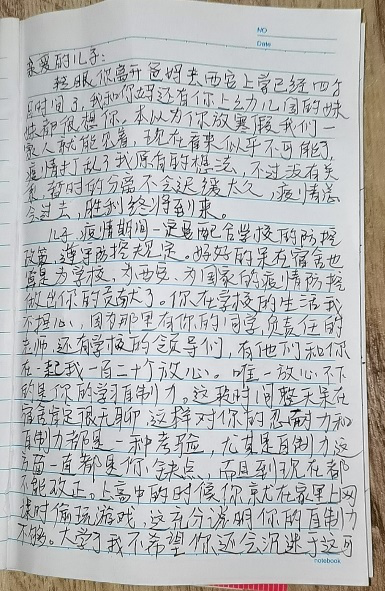 NO
Date
亲爱的儿子:
转眼你离开爸妈来西安上学已经四个
月时间了,我和你妈还有你上幼儿园的妹
妹都很想你,本以为你放寒假我们一
家人就能见着,现在看来似乎不可能了,
疫情打乱了我原有的想法,不过没有关
系,暂时的分离不会延续太久,疫情总
会过去,胜利终将到来。
儿子,疫情期间一定要配合学校的防控
政策,遵守防控规定。好好的呆在宿舍也
算是为学校、为西安、为国家的疫情防控
做出你的贡献了。你在学校的生活我
不担心,因为那里有你的同学,负责任的
老师,还有学校的领导们,有他们和你
在一起我一百二十个放心。唯一放心不下
的是你的学习自制力。这段时间整天呆在
宿舍肯定很无聊,这样对你的忍耐力和
自制力都是一种考验,尤其是自制力这
方面一直都是你缺点,而且到现在都
不能改正。上高中的时候你就在家里上网
课时偷玩游戏,这充分说明你的自制力
不够。大学了我不希望你还会沉迷于这
notebook